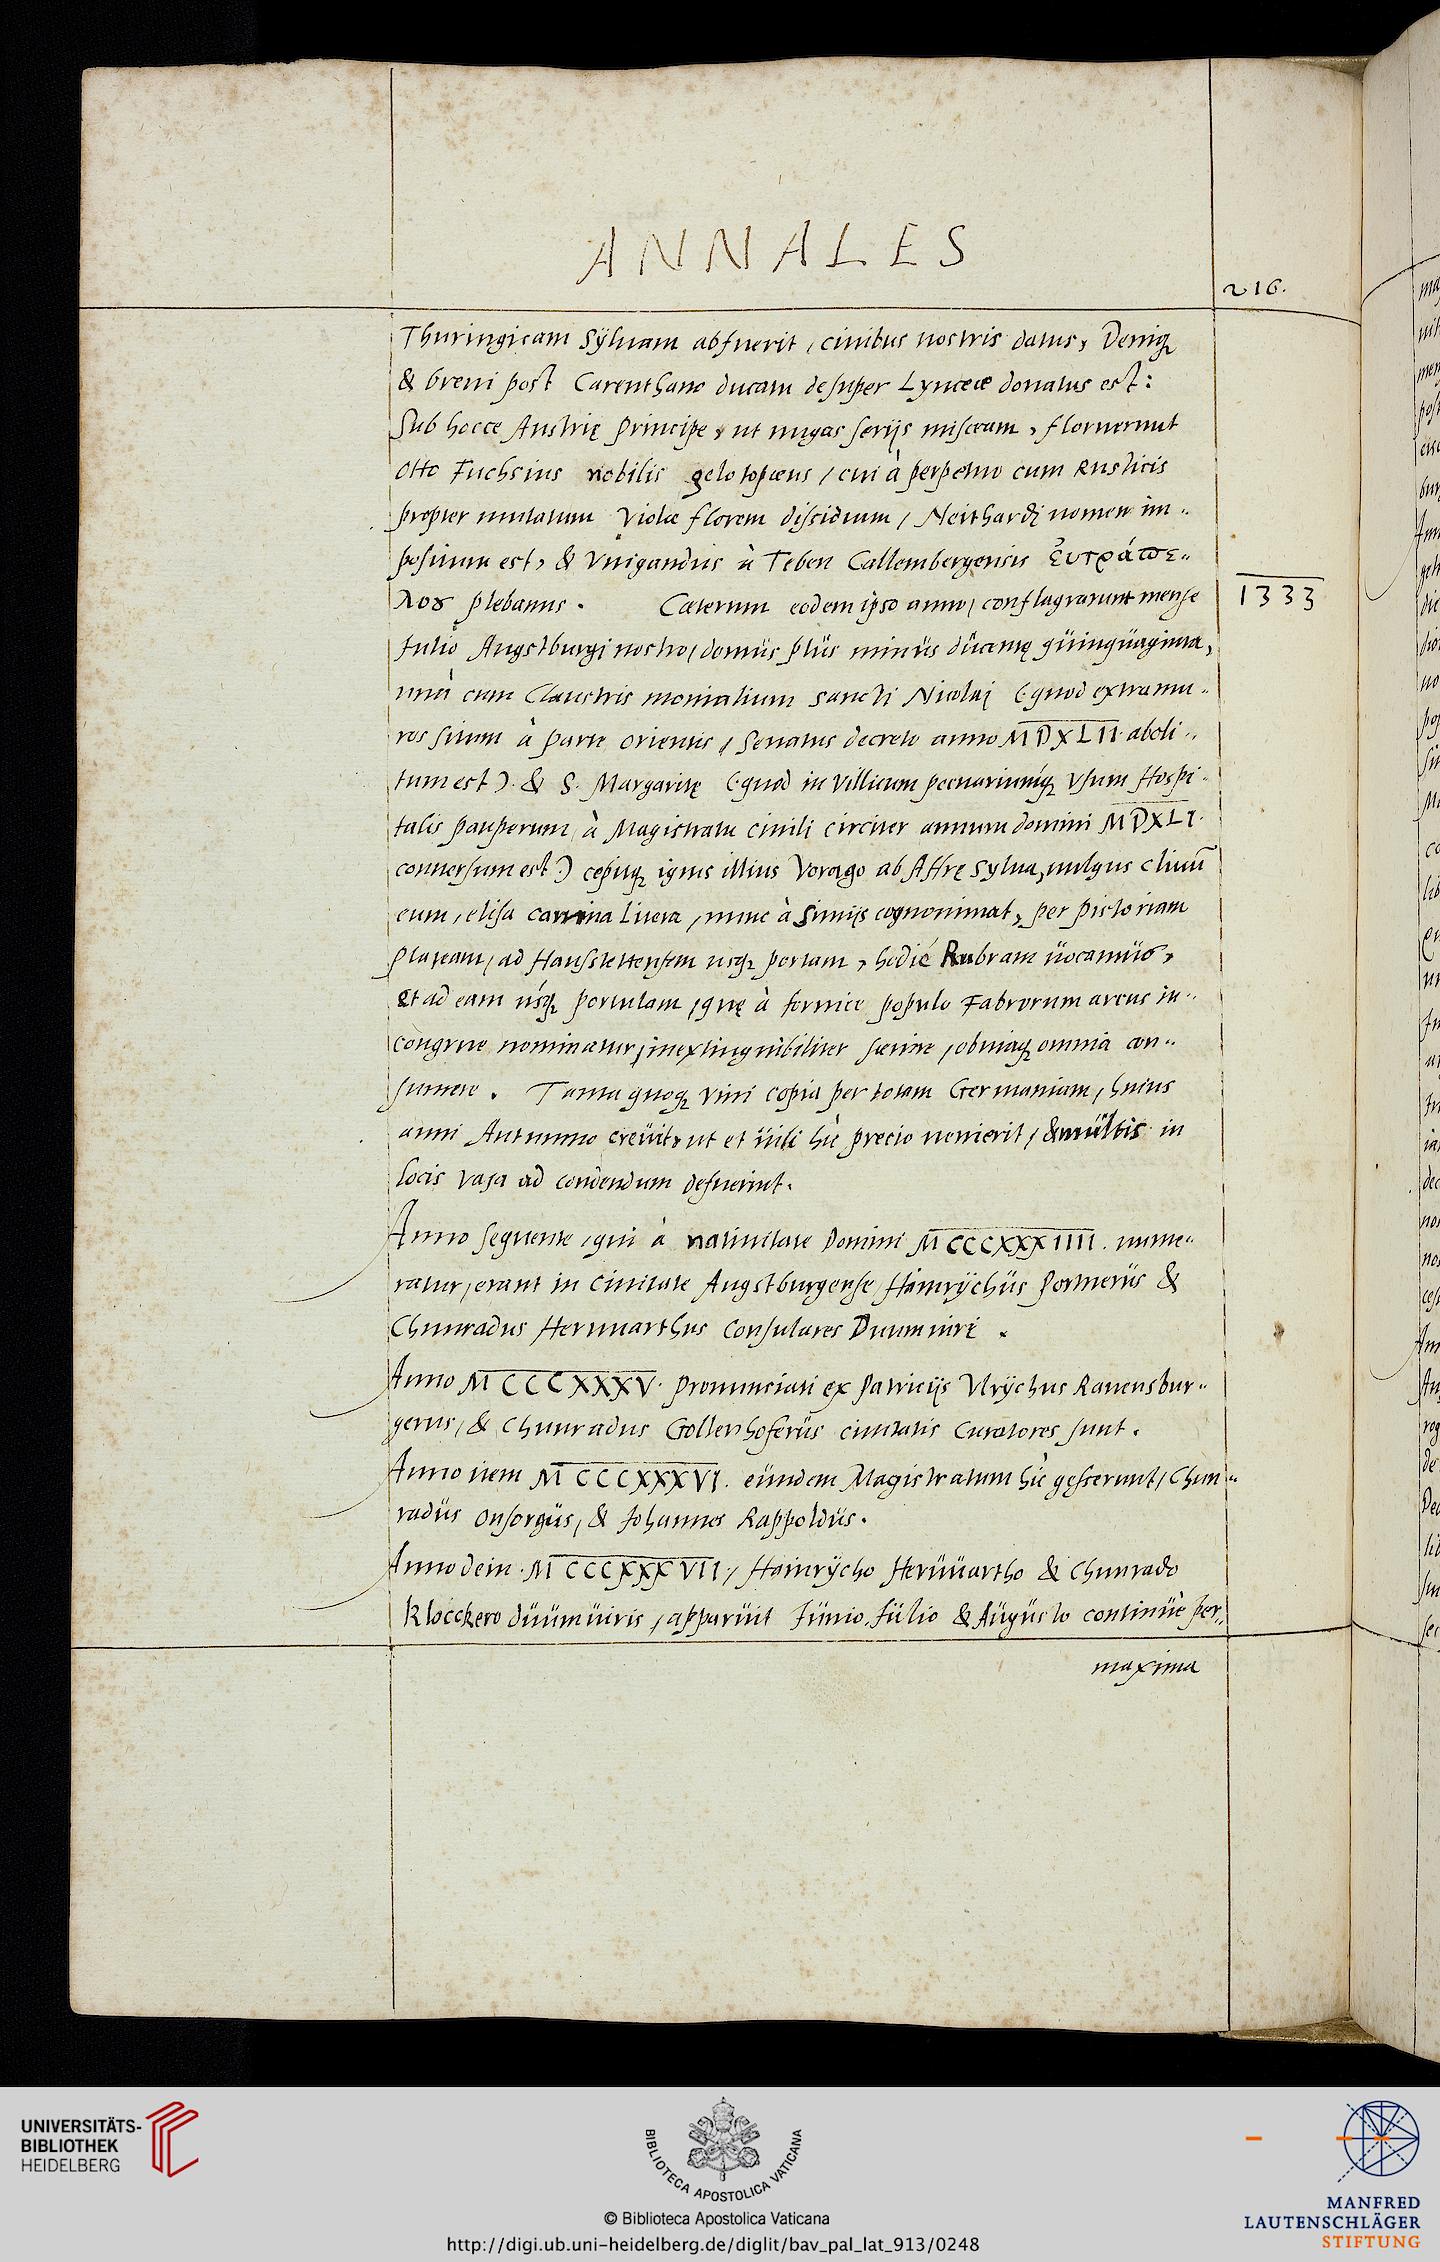 ANNALES
216.
Thuringicam Sÿluam abfuerit, ciuibus nostris datus, Deniqꝫ
& breui post Carenthano ducatu desuper Lynceæ donatus est:
Sub hocce Austrię Principe, ut nugas serijs misceam, floruerunt
Otto Fuchsius nobilis gelotopœus, cui à perpetuo cum Rusticis
propter mutatum Violæ florem dissidium, Neithardi nomen im-
positum est, & Vuigandus à Teben Callembergensis Ἐυτράπε-
λου plebanus. Cæterum eodem ipso anno, conflagrarunt mense
1333
Iulio Augstburgi nostro, domus plus minus ducentę quinquaginta,
unà cum Claustris monialium Sancti Nicolaj (quod extra mu-
ros situm à parte orientis, Senatus decreto anno MDXLII aboli-
tum est) & S. Margaritę (quod in villicum pecuariumqꝫ Vsum Hospi-
talis pauperum, à Magistratu ciuili circiter annum domini MDXLI.
conuersum est) cepitqꝫ ignis illius Vorago ab Affrę Sylua, uulgus cliuū
eum, elisa canina litera, nunc à Simijs cognominat, per pistoriam
plateam, ad Hausstettensem usqꝫ portam, hodie Rubram uocamus,
et ad eam usqꝫ portulam, quę à fornice populo Fabrorum arcus in-
congrue nominatur, inextinguibiliter sæuire, obuiaqꝫ omnia con-
sumere. Tanta quoqꝫ vini copia per totam Germaniam, huius
anni Autumno creuit, ut et uili hic precio uenierit, & multis in
locis vasa ad condendum defuerint.
Anno sequente, qui à natiuitate Domini MCCCXXXIIII. nume-
ratur, erant in Ciuitate Augstburgense Hainrÿchus Portnerus &
Chunradus Heruuarthus Consulares Duumuiri.
Anno MCCCXXXV. pronunciati ex Patricijs Vlrÿchus Rauensbur-
gerus, & Chunradus Gollenhoferus ciuitatis Curatores sunt.
Anno item MCCCXXXVI. eundem Magistratum hic gesserunt, Chun-
radus Onsorgus, & Iohannes Rappoldus.
Anno dein MCCCXXXVII, Hainrÿcho Heruuartho & Chunrado
Klocckero duumuiris, apparuit Iunio, Iulio & Augusto continuè per-
maxima
UNIVERSITÄTS-
BIBLIOTHEK
HEIDELBERG
BIBLIOTECA APOSTOLICA VATICANA
© Biblioteca Apostolica Vaticana
http://digi.ub.uni-heidelberg.de/diglit/bav_pal_lat_913/0248
MANFRED
LAUTENSCHLÄGER
STIFTUNG